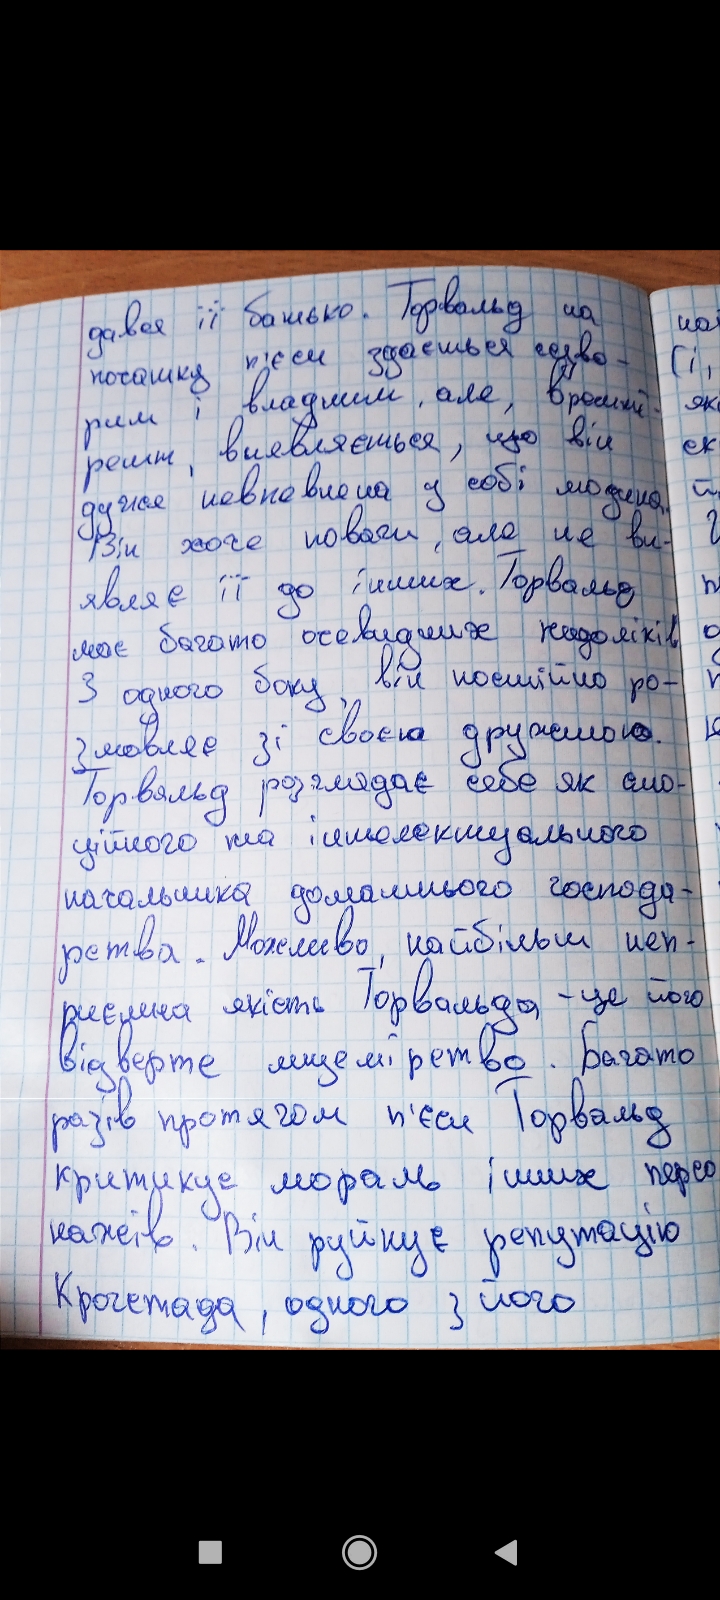 давав її батько. Торвальд на
початку п'єси здається суво-
рим і владним, але, врешті-
решт, виявляється, що він
дуже невпевнена у собі людина.
Він хоче поваги, але не ви-
являє її до інших. Торвальд
має багато очевидних недоліків
З одного боку, він постійно ро-
змовляє зі своєю дружиною.
Торвальд розглядає себе як емо-
ційного та інтелектуального
начальника домашнього господа-
рства. Можливо, найбільш неп-
риємна якість Торвальда - це його
відверте лицемірство. Багато
разів протягом п'єси Торвальд
критикує мораль інших персо
нажів. Він руйнує репутацію
Крогстада, одного з його